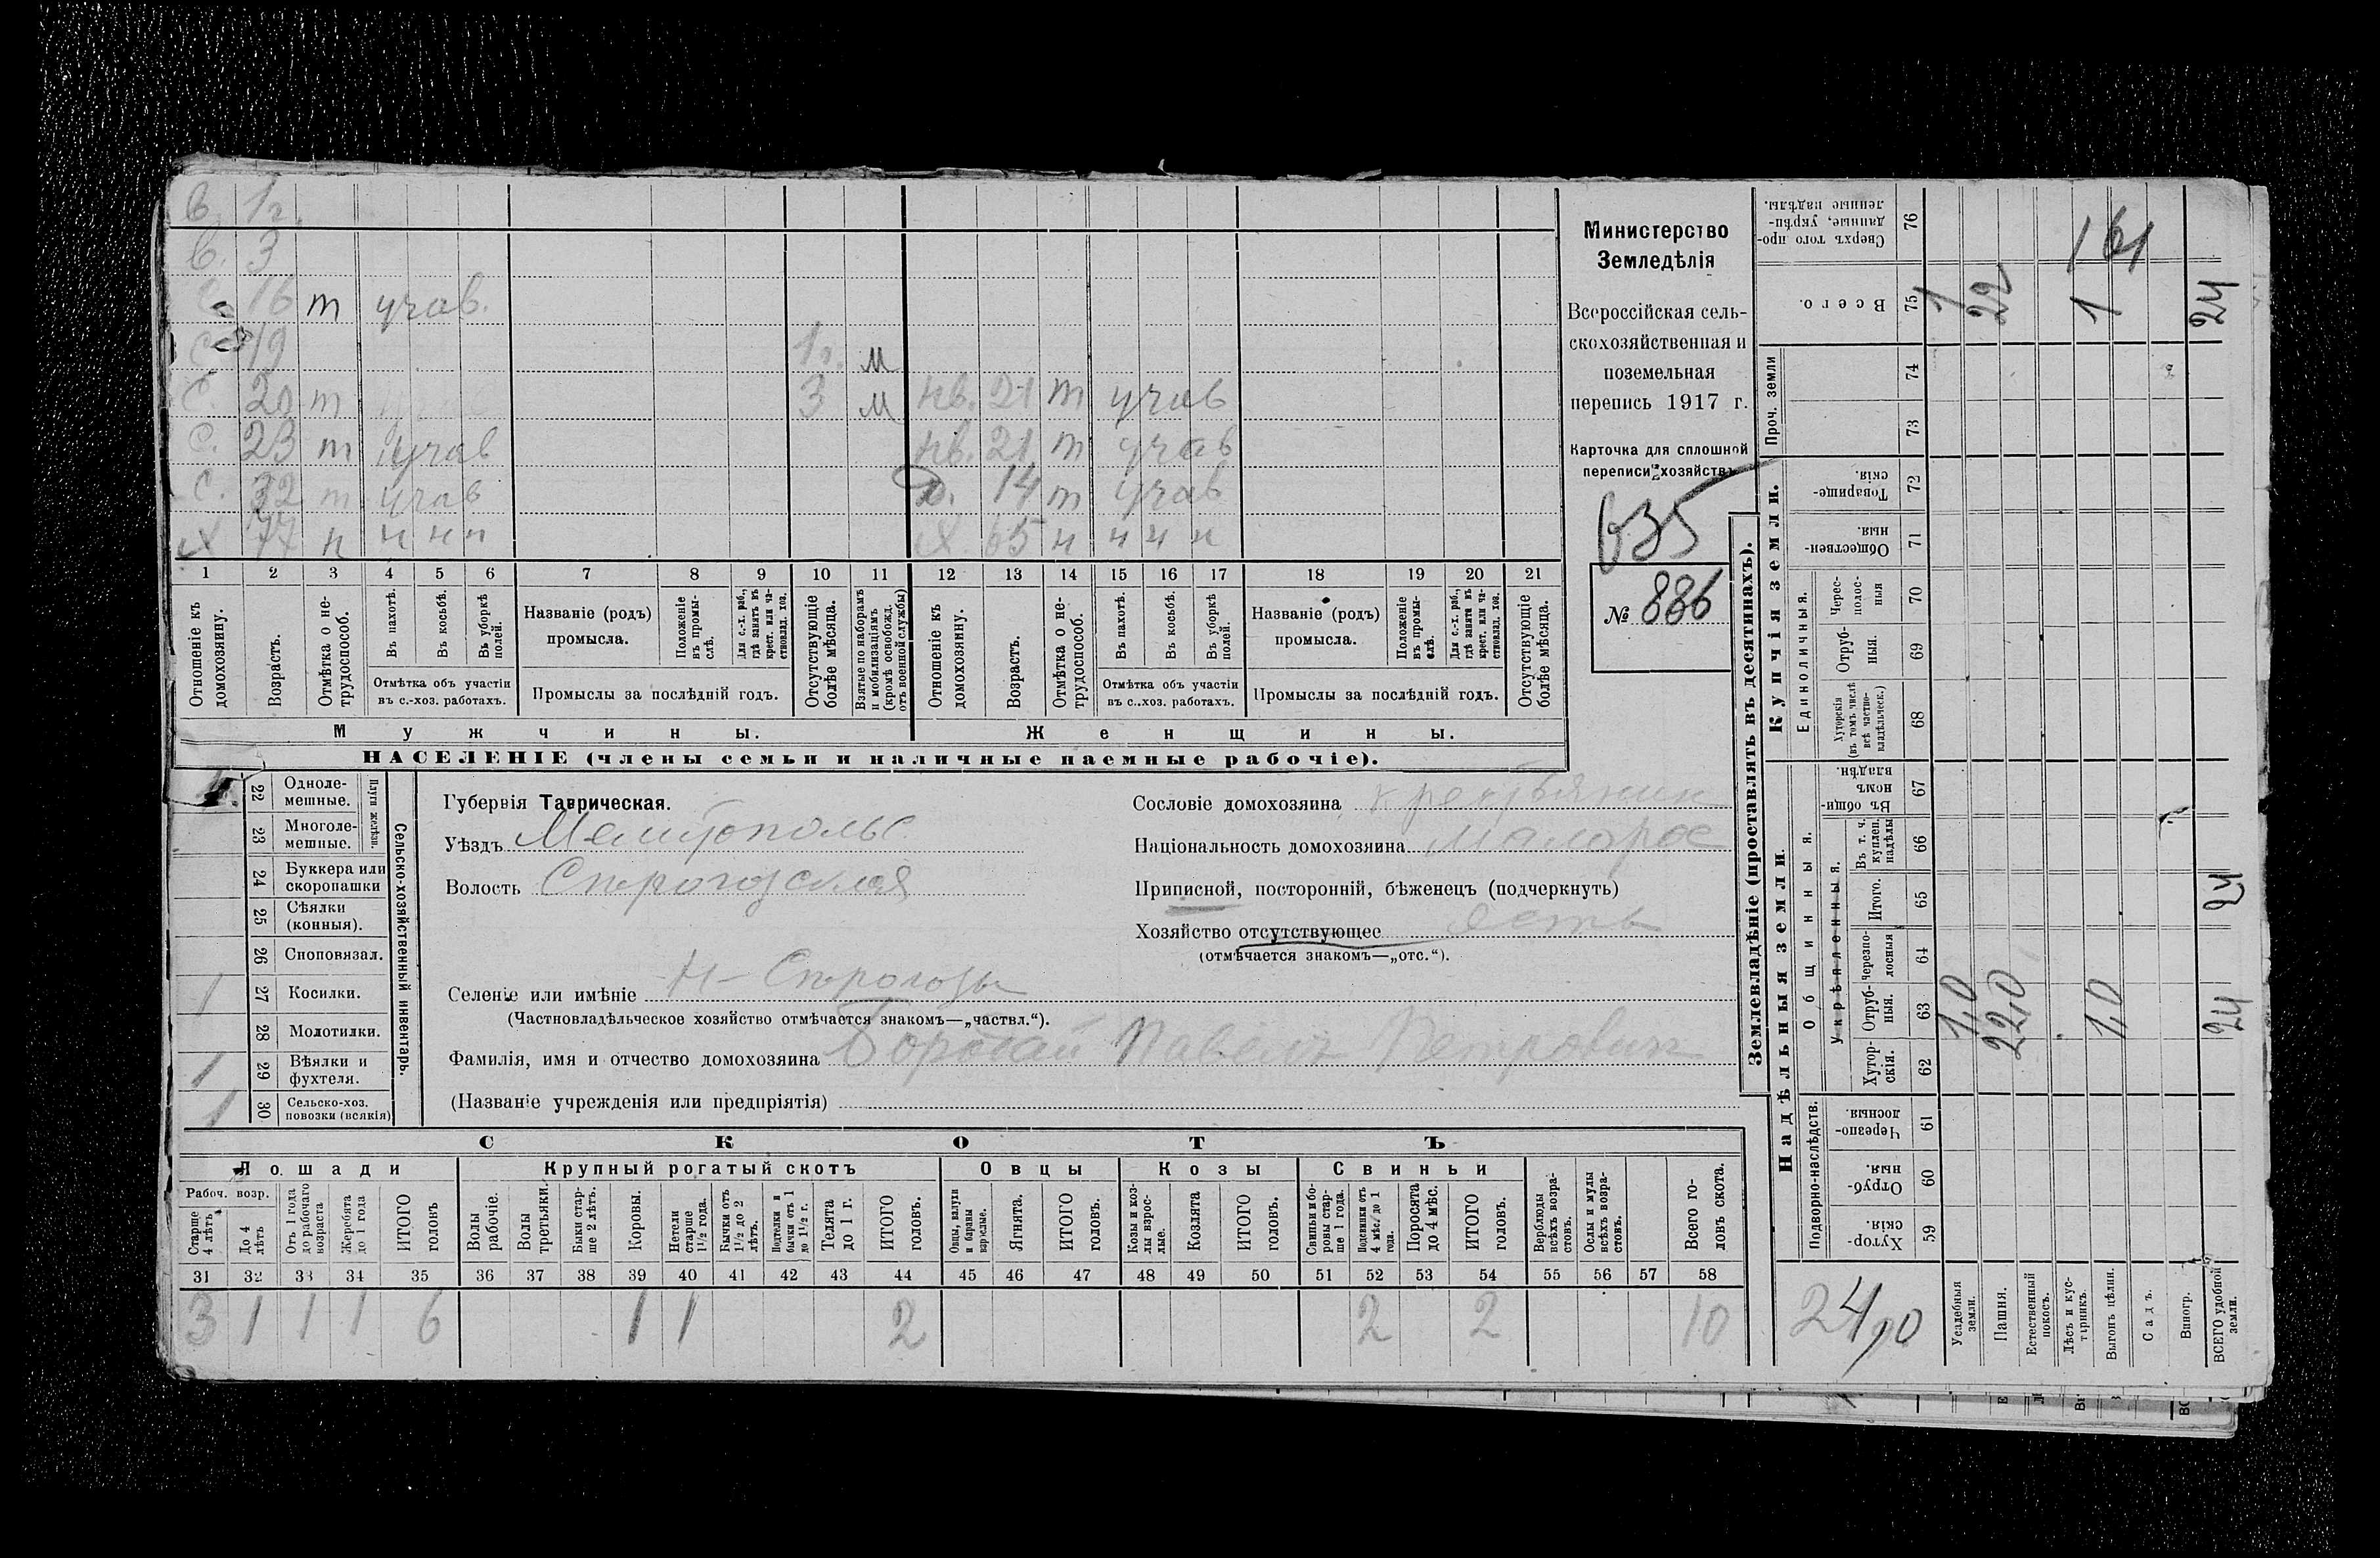 в. 1 г.
в. 3
с. 16 т учав.
с. 19 1 г. м
с. 20 т 3 м нв. 21 т учав
с. 23 т учав нв. 21 т учав
с. 32 т учав д. 14 т учав
х 77 н н н н х 65 н н н н
1 2 3 4 5 6 7 8 9 10 11 12 13 14 15 16 17 18 19 20 21
Отношеніе къ домохозяину.
Возрастъ.
Отмѣтка о не-
трудоспособ.
Въ пахотѣ.
Въ косьбѣ.
Въ уборкѣ полей.
Отмѣтка объ участіи
въ с.-хоз. работахъ.
Названіе (родъ)
промысла.
Положеніе въ промы-
слѣ.
Для с.-х. раб., гдѣ занятъ въ крест. или ча-
стновлад. хоз.
Промыслы за послѣдній годъ.
Отсутствующіе болѣе мѣсяца.
Взятые по наборамъ и мобилизаціямъ (кромѣ освобожд. отъ военной службы)
Отношеніе къ домохозяину.
Возрастъ.
Отмѣтка о не-
трудоспособ.
Въ пахотѣ.
Въ косьбѣ.
Въ уборкѣ полей.
Отмѣтка объ участіи
въ с.-хоз. работахъ.
Названіе (родъ)
промысла.
Положеніе въ промы-
слѣ.
Для с.-х. раб., гдѣ занята въ крест. или ча-
стновлад. хоз.
Промыслы за послѣдній годъ.
Отсутствующіе болѣе мѣсяца.
Мужчины. Женщины.
НАСЕЛЕНІЕ (члены семьи и наличные наемные рабочіе).
Министерство
Земледѣлія
Всероссійская сель-
скохозяйственная и
поземельная
перепись 1917 г.
Карточка для сплошной
переписи хозяйствъ
635
№ 886
22 Одноле-
мешные.
23 Многоле-
мешные.
Плуги желѣзн.
24 Буккера или
скоропашки
25 Сѣялки
(конныя).
26 Сноповязал.
1 27 Косилки.
28 Молотилки.
1 29 Вѣялки и
фухтеля.
1 30 Сельско-хоз.
повозки (всякія)
Сельско-хозяйственный инвентарь.
Губернія Таврическая.
Уѣздъ Мелитопольс
Волость Сѣрогозская
Селеніе или имѣніе Н-Сѣрогозы
(Частновладѣльческое хозяйство отмѣчается знакомъ—„частвл.“).
Фамилія, имя и отчество домохозяина Бортай Павелъ Петровичъ
(Названіе учрежденія или предпріятія)
Сословіе домохозяина крестьянин
Національность домохозяина малорос
Приписной, посторонній, бѣженецъ (подчеркнуть)
Хозяйство отсутствующее есть
(отмѣчается знакомъ—„отс.“).
СКОТЪ
Лошади Крупный рогатый скотъ Овцы Козы Свиньи
Рабоч. возр.
Старше 4 лѣтъ
До 4 лѣтъ
Отъ 1 года до рабочаго возраста
Жеребята до 1 года
ИТОГО головъ
Волы рабочіе.
Волы третьяки.
Быки стар-
ше 2 лѣтъ.
Коровы.
Нетели старше 1½ года.
Бычки отъ 1½ до 2 лѣтъ.
Подтелки и бычки отъ 1 до 1½ г.
Телята до 1 г.
ИТОГО головъ.
Овцы, валухи и бараны взрослые.
Ягнята.
ИТОГО головъ.
Козы и коз-
лы взрос-
лые.
Козлята
ИТОГО головъ.
Свиньи и бо-
ровы стар-
ше 1 года.
Подсвинки отъ 4 мѣс. до 1 года.
Поросята до 4 мѣс.
ИТОГО головъ.
Верблюды всѣхъ возра-
стовъ.
Ослы и мулы всѣхъ возра-
стовъ.
Всего го-
ловъ скота.
31 32 33 34 35 36 37 38 39 40 41 42 43 44 45 46 47 48 49 50 51 52 53 54 55 56 57 58
3 1 1 1 6 1 1 2 2 2 10
Землевладѣніе (проставлять въ десятинахъ).
Надѣльныя земли. Купчія земли.
Проч. земли
Сверхъ того про-
данные, укрѣп-
ленные надѣлы.
76
161
Всего.
75
1 22 1 24
74
73
Товарище-
скія.
72
Обществен-
ныя
71
Единоличныя.
Черес-
полос-
ныя
70
Отруб-
ныя.
69
Хуторскія (въ томъ числѣ всѣ частно-
владѣльческ.)
68
Общинныя.
Въ общи-
номъ
владѣн.
67
Укрѣпленныя.
Въ т. ч. куплен. надѣлы
66
Итого.
65
24
Черезпо-
лосныя
64
Отруб-
ныя.
63
1,0 22,0 1,0 24
Хутор-
скія.
62
Подворно-наслѣдств.
Черезпо-
лосныя
61
Отруб-
ныя.
60
Хутор-
скія.
59
24,0
Усадебныя земли.
Пашня.
Естественный покосъ.
Лѣсъ и кус-
тарникъ.
Выгонъ цѣлин.
Садъ.
Виногр.
ВСЕГО удобной земли.